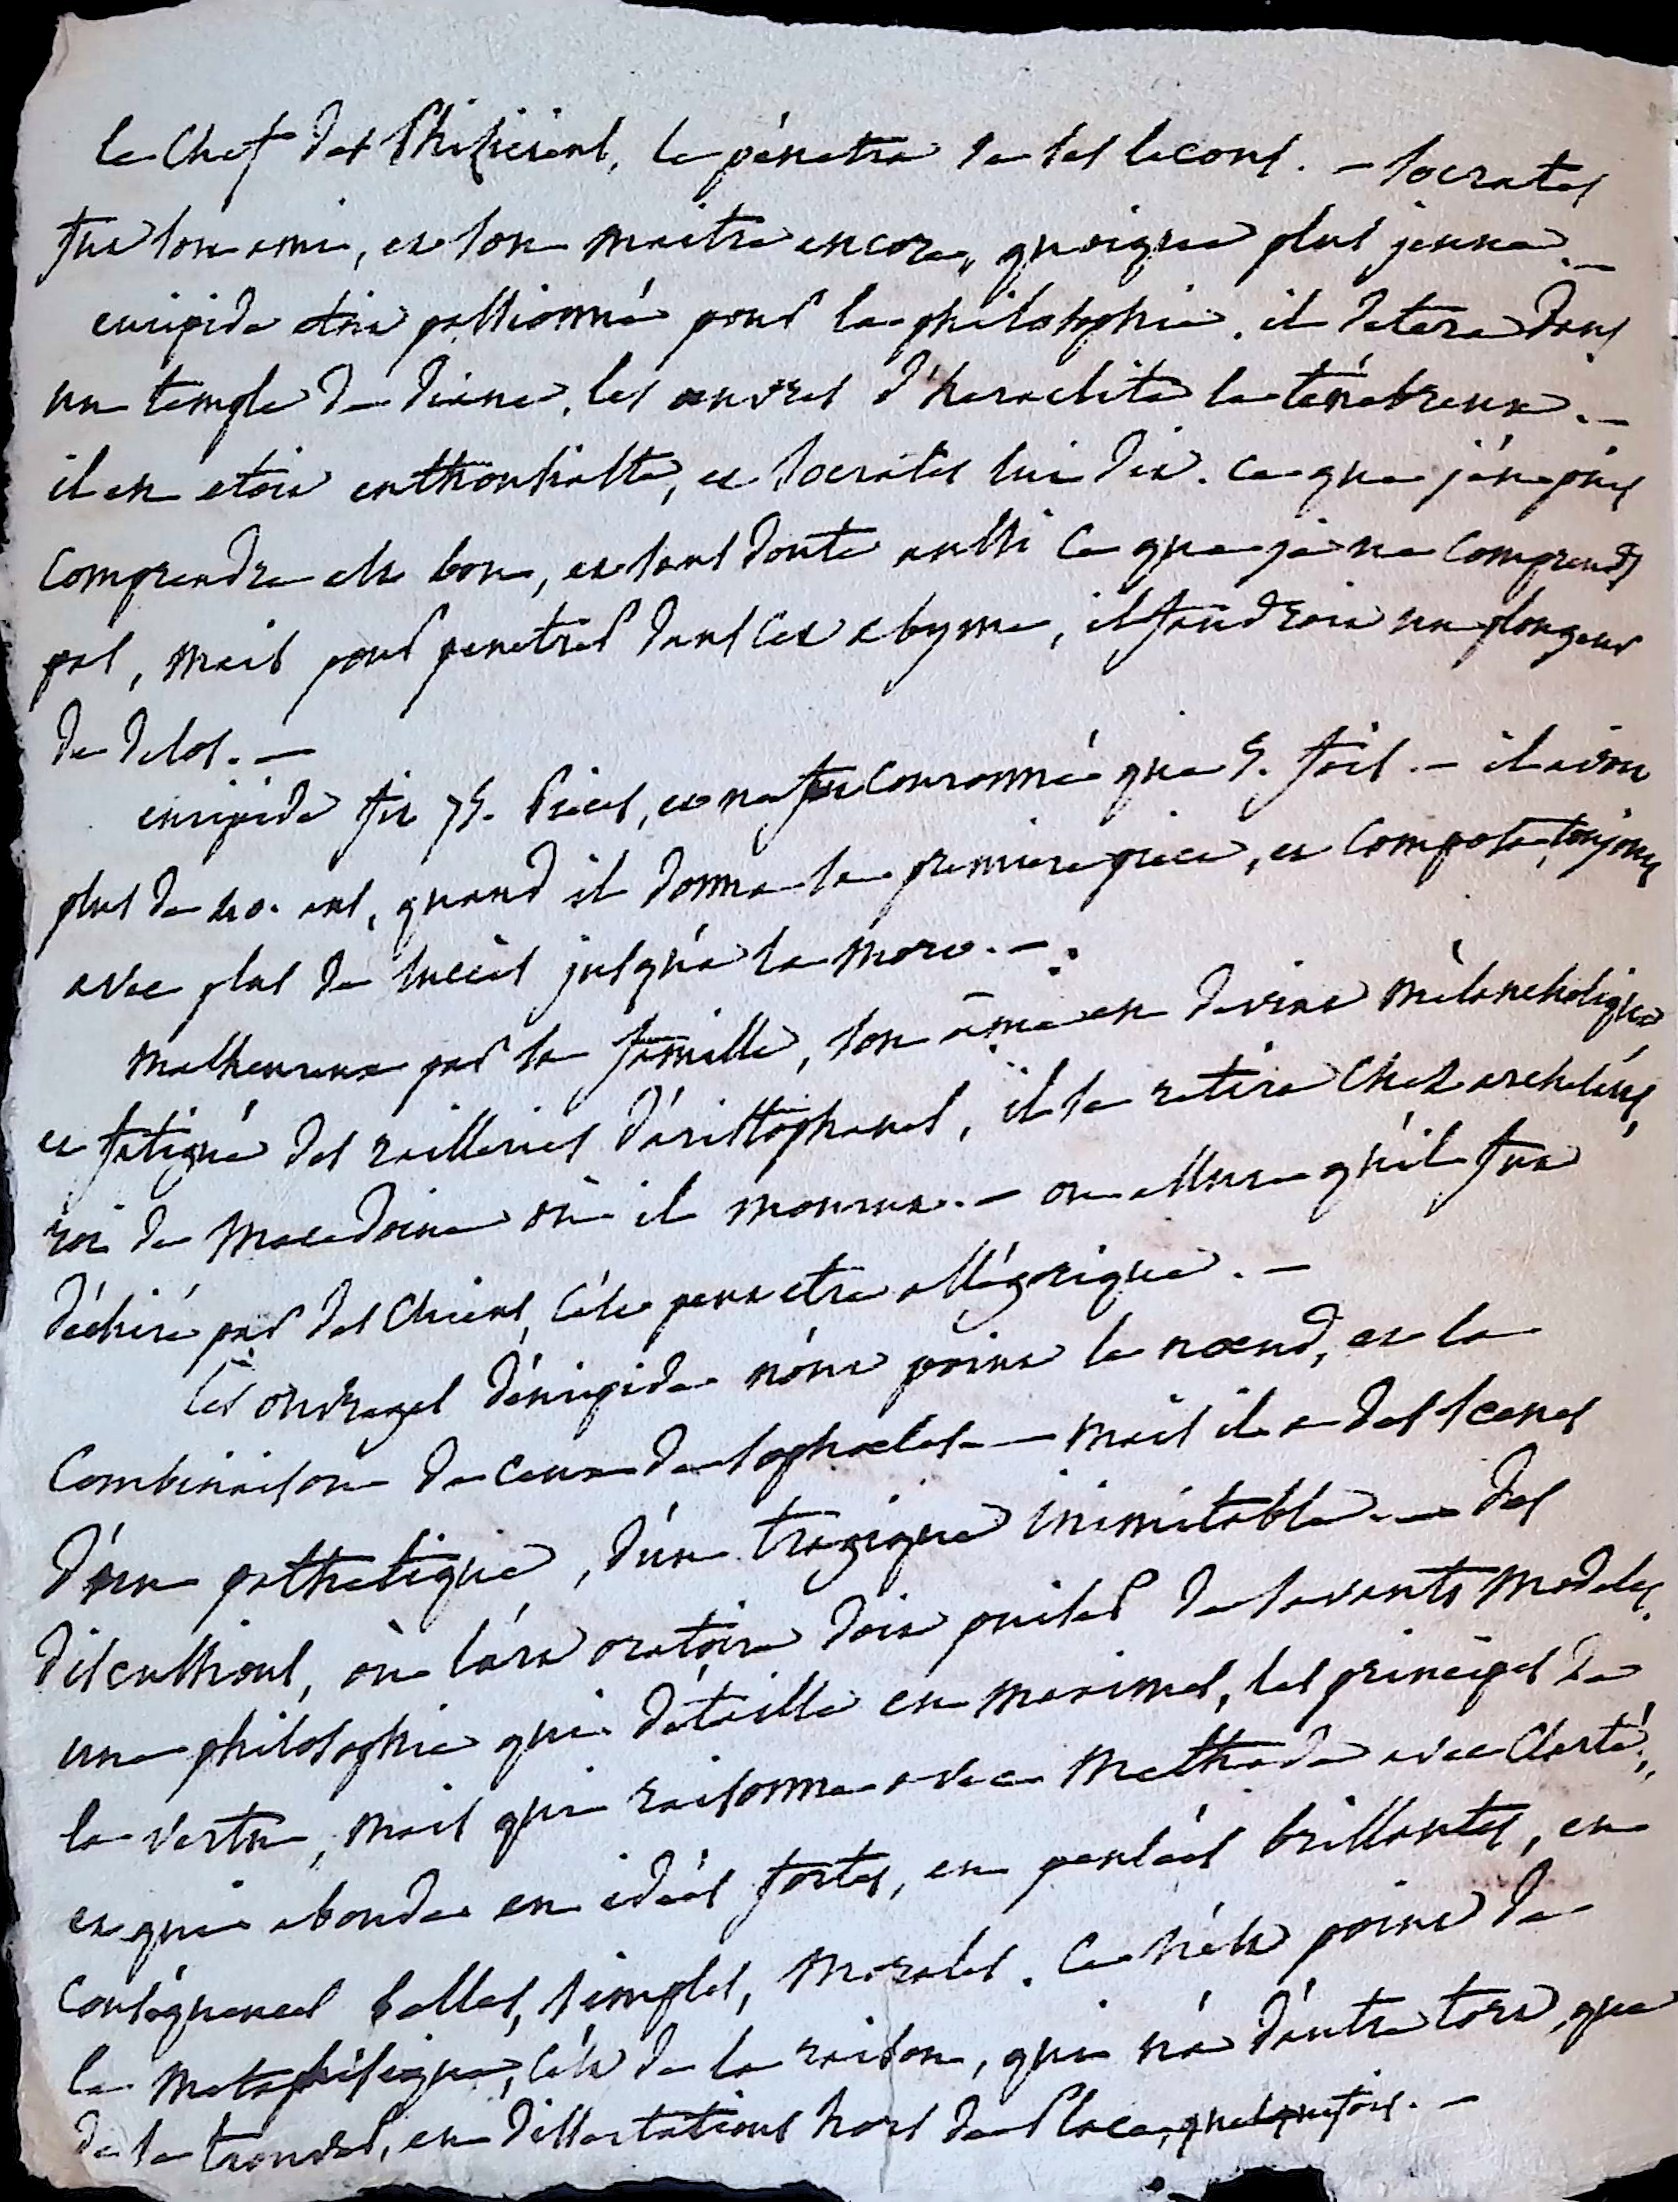 le Chef des Phisiciens, le pénetra de ses lecons. – Socrates
fut son ami, et son maitre encore, quoique plus jeune. –
euripide etoit passionné pour la philosophie. il detera dans
un temple de diane, les œuvres d'heraclite le ténébreux. –
il en etoit enthousiaste, et Socrates lui dit. ce que j'en puis
comprendre est bon, et sans doute aussi ce que je ne comprends
pas, mais pour penetrer dans cet abyme, il faudroit un plongeur
de delos. –
euripide fit 75. Pieces, et ne fut Couronné que 5. fois. – il avoit
plus de 40. ans, quand il donna sa premiere piece, et composa toujours
avec plus de succès jusqu'à sa mort. –
Malheureux par sa famille, son ame en devint mélancholique,
et fatigué des railleries d'aristophanes, il se retira Chez archelaus,
roi de Macedoine où il mourut. – on assure qu'il fut
déchiré par des Chiens, c'est peut etre allégorique. –
les ouvrages d'euripide n'ont point le nœud, et la
Combinaison de ceux de sophocles – mais il a des scenes
d'un pathetique, d'un tragique inimitable. – des
discussions, où l'art oratoire doit puiser de savants modeles.
une philosophie qui détaille en maximes, les principes de
la vertu, mais qui raisonne avec methode avec Clarté,
et qui abonde en idées fortes, en pensées brillantes, en
conséquences belles, simples, morales. Ce n'est point de
la Metaphisique, c'est de la raison, qui n'a d'autre tort, que
de se trouver, en dissertations hors de Place, quelquefois. –